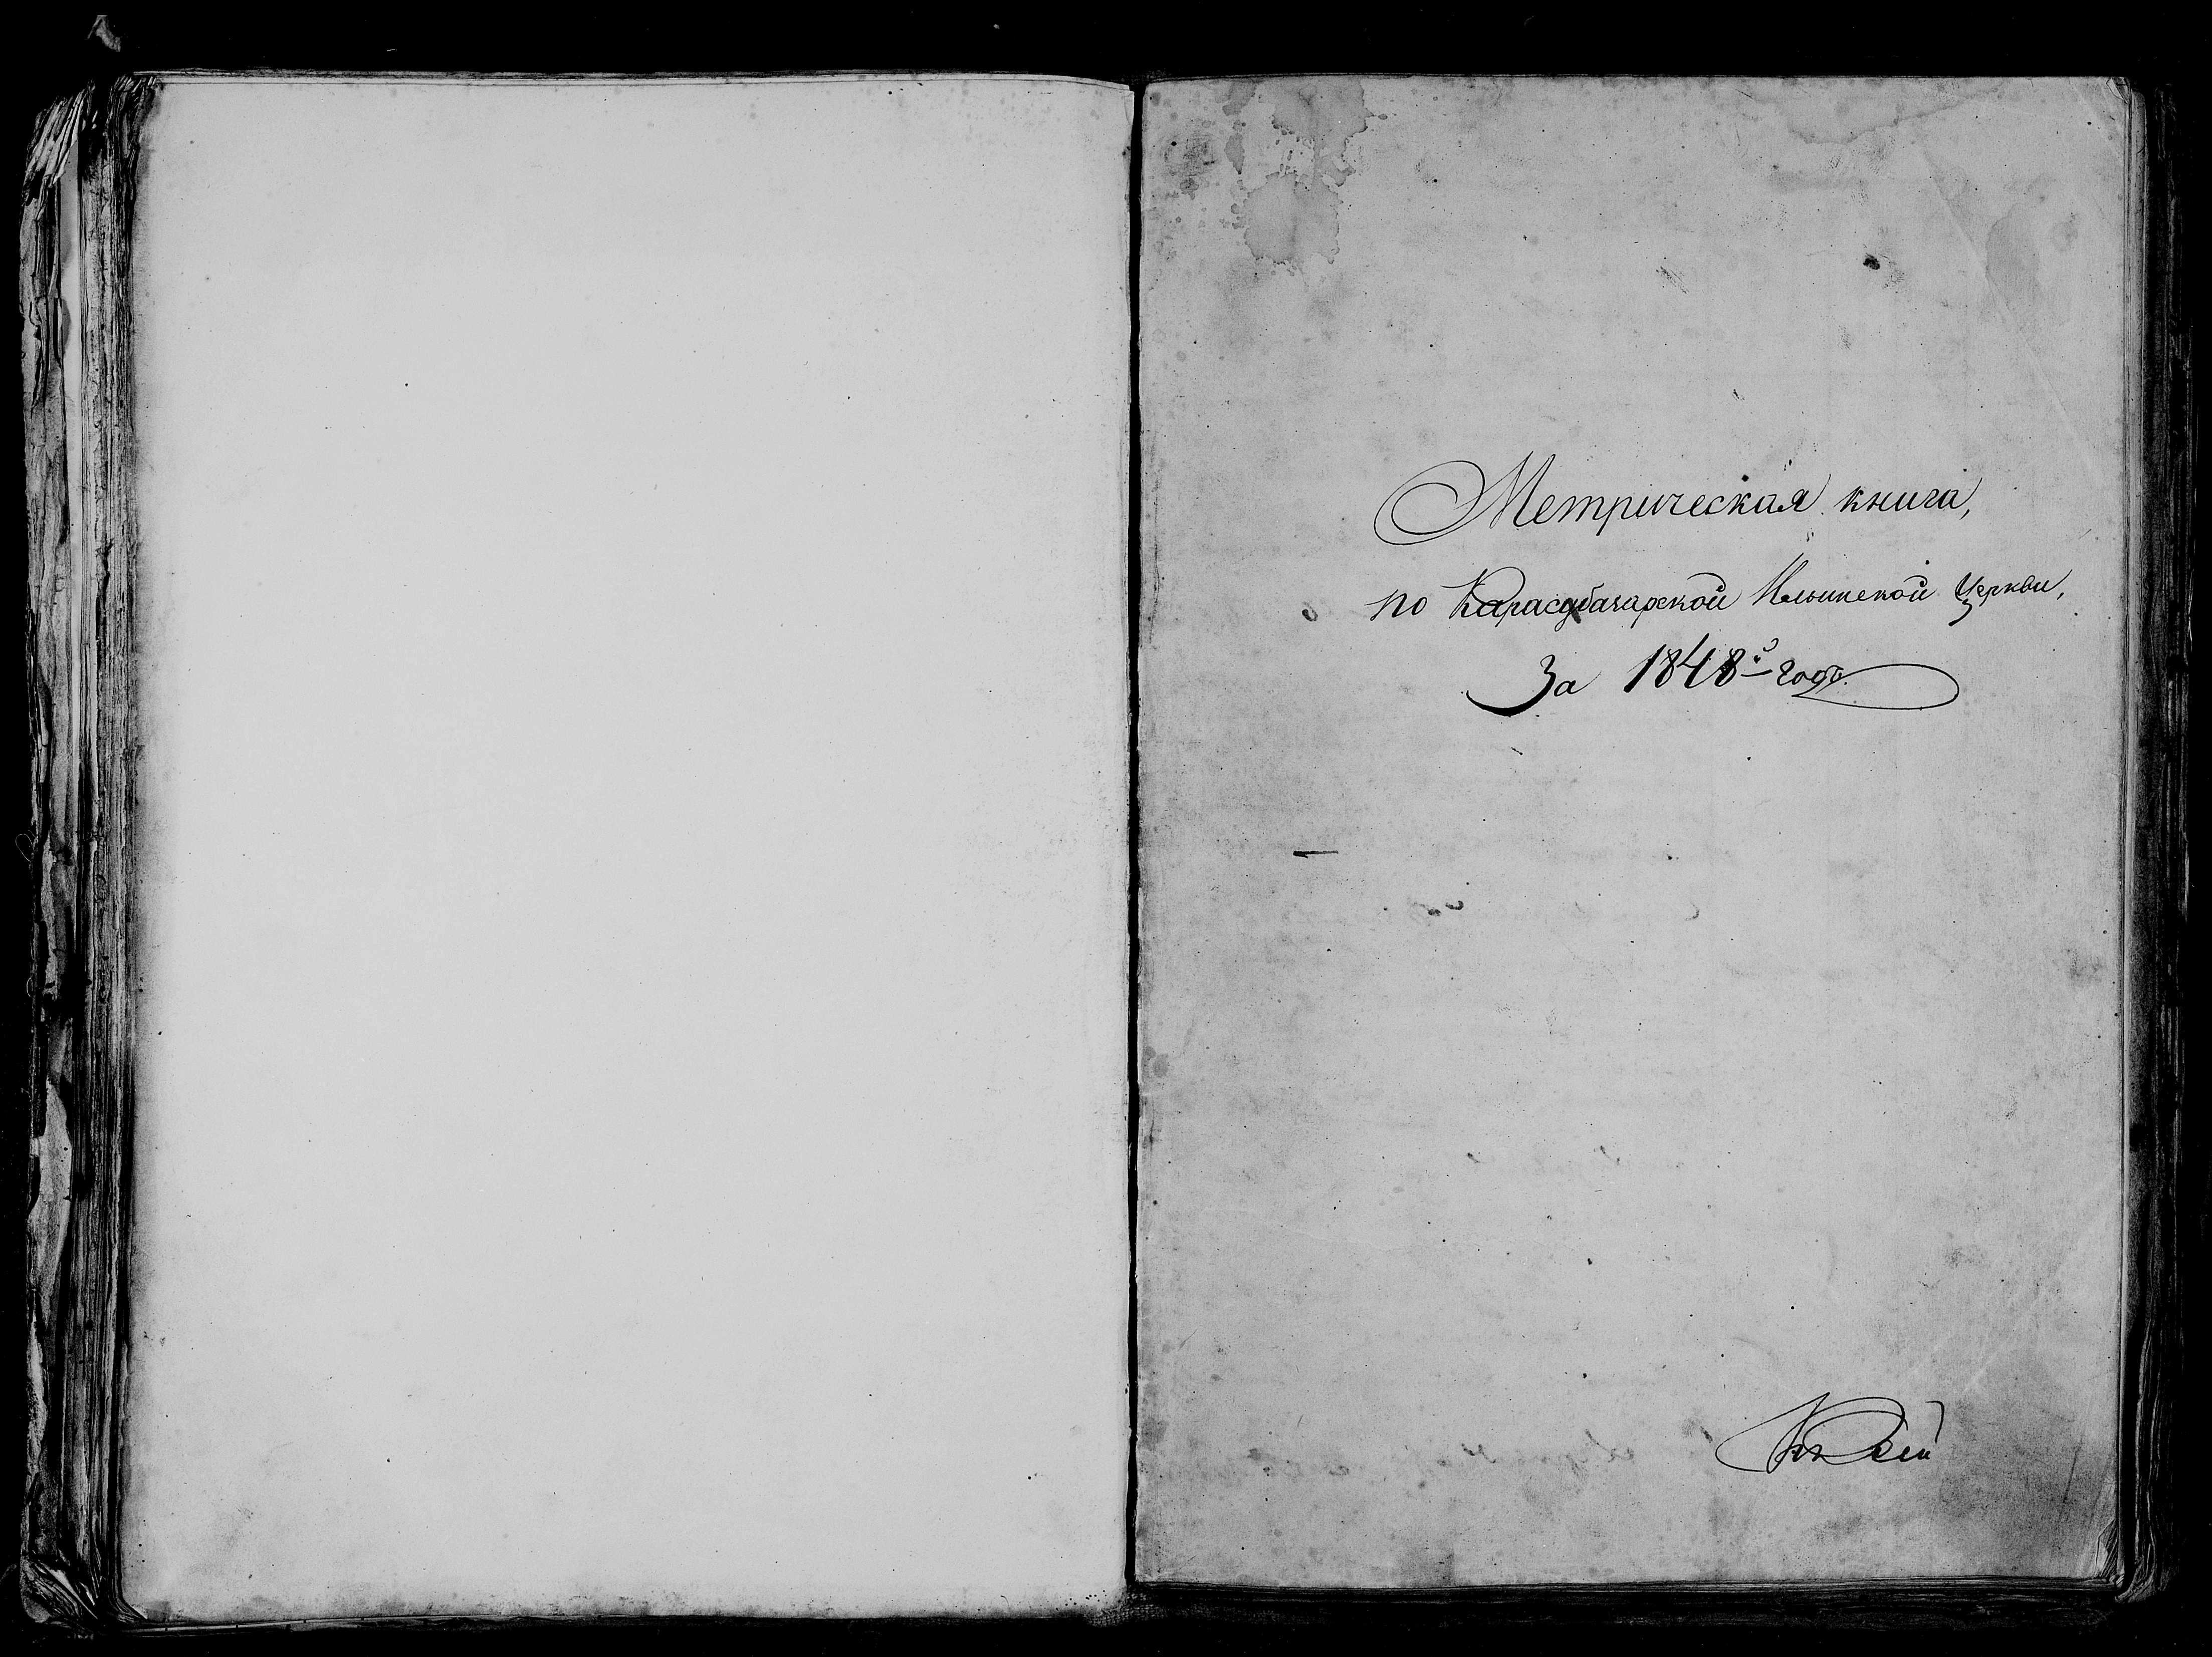 Метрическая книга,
по Карасубазарской Ильинской Церкви,
За 1848й годъ.